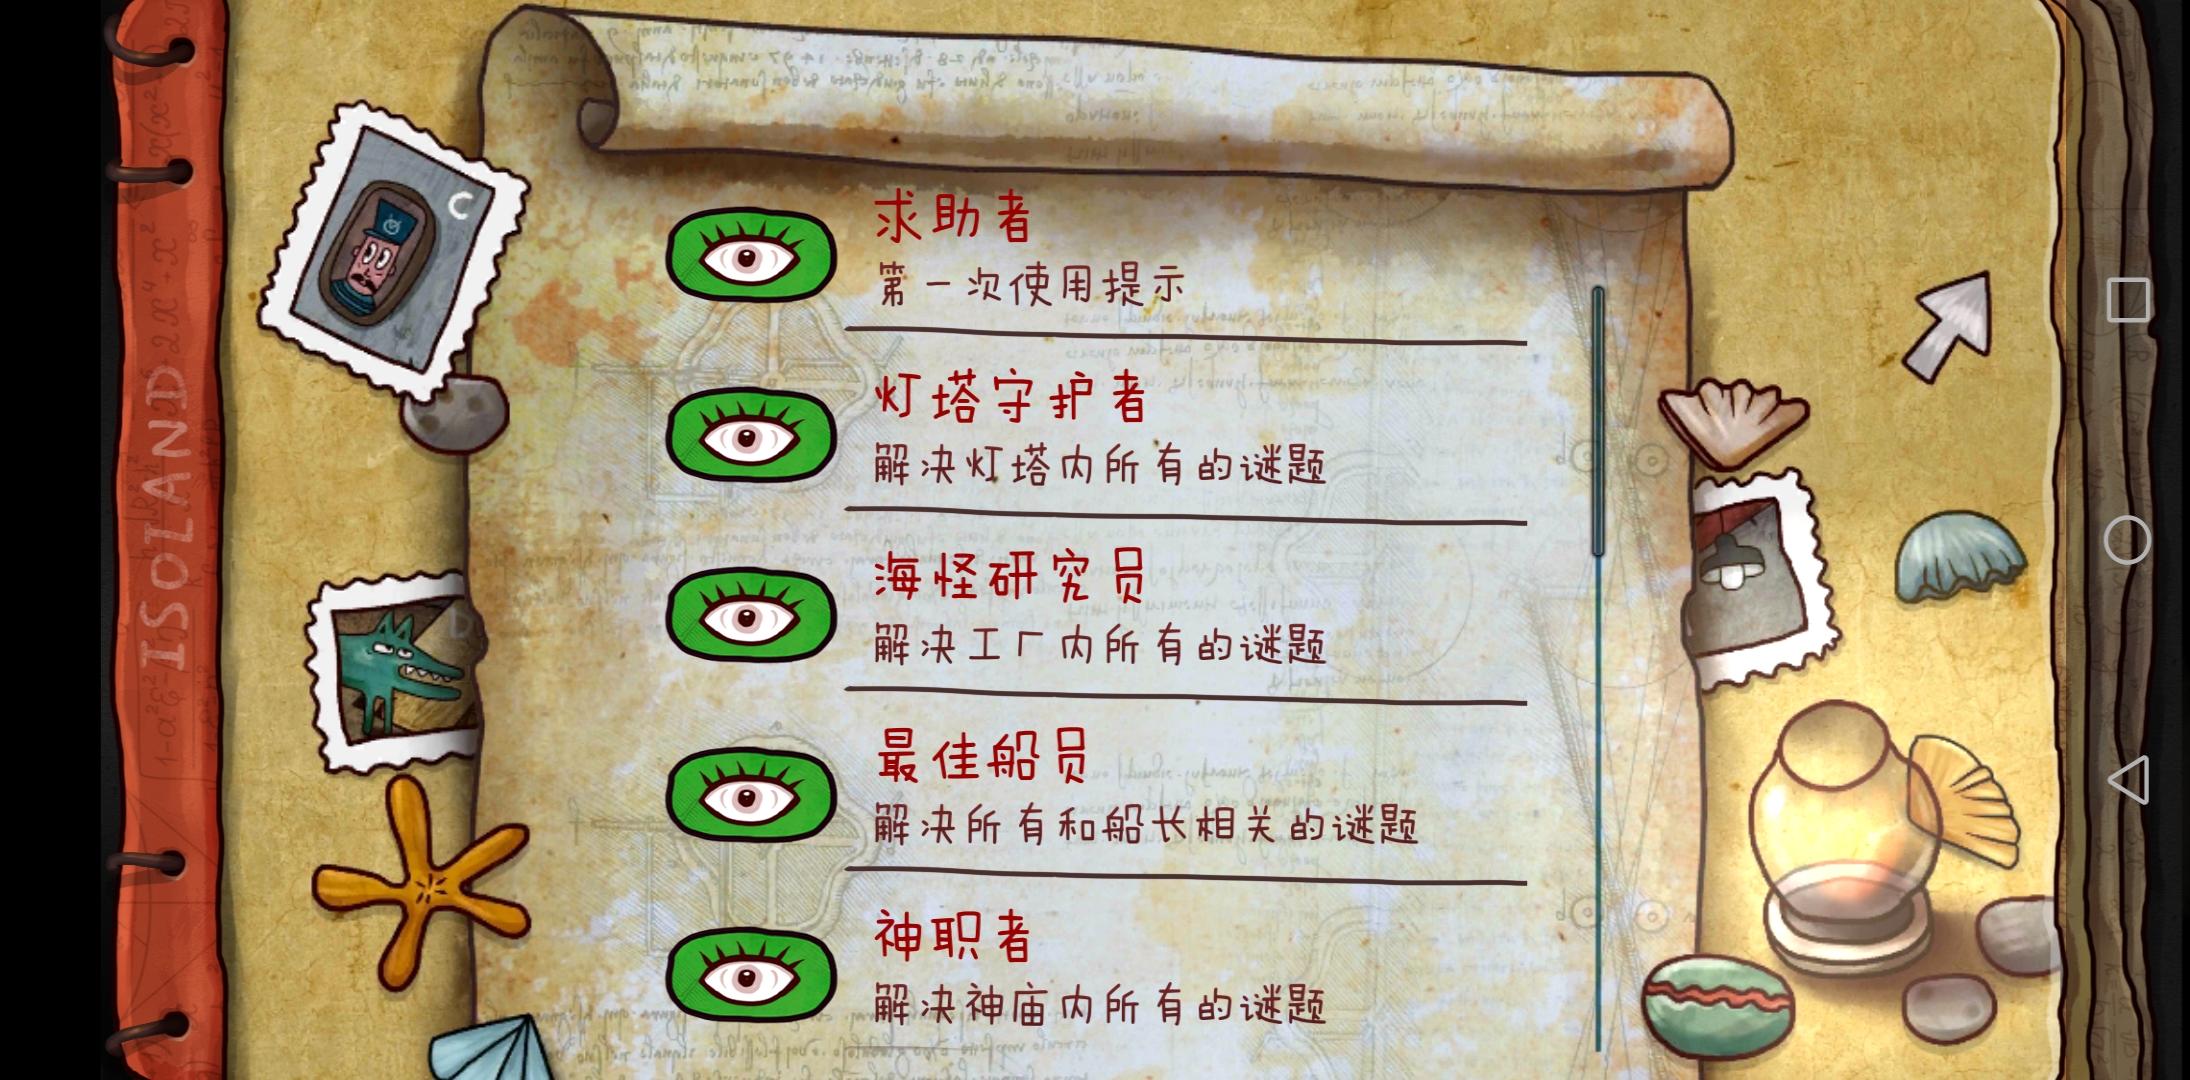 求助者
第一次使用提示
灯塔守护者
解决灯塔内所有的谜题
海怪研究员
解决工厂内所有的谜题
最佳船员
解决所有和船长相关的谜题
神职者
解决神庙内所有的谜题
ISOLAND